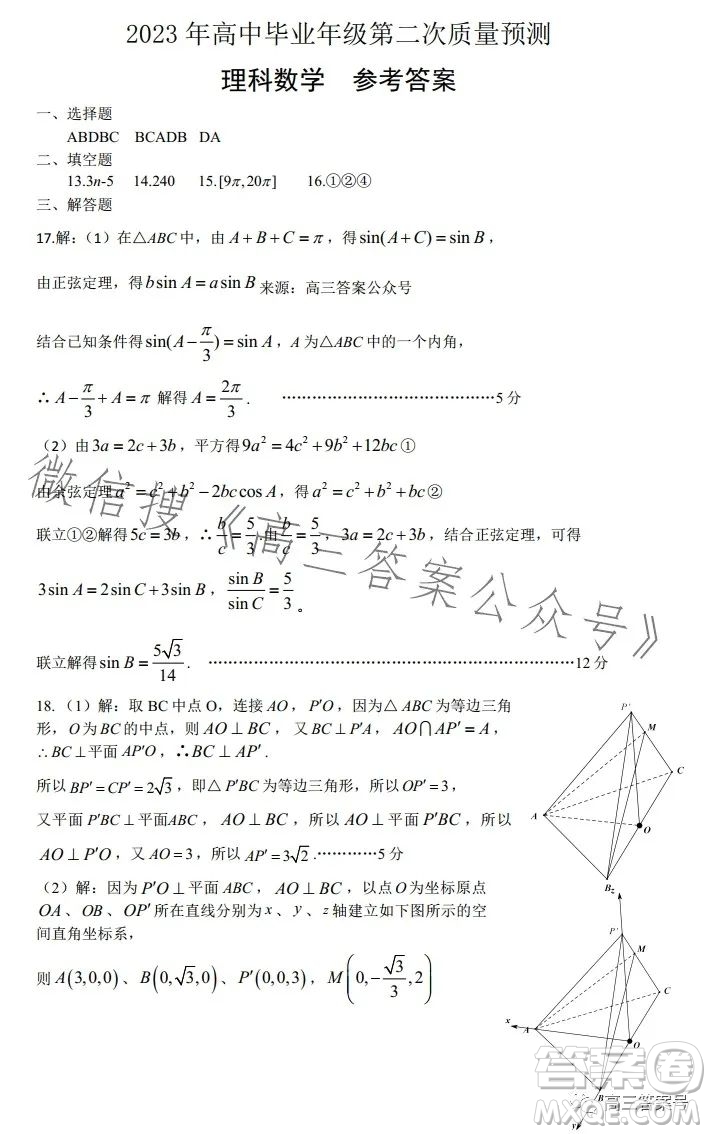 2023 年高中毕业年级第二次质量预测
理科数学 参考答案
一、选择题
ABDBC BCADB DA
二、填空题
13.3n-5 14.240 15.[9π,20π] 16.①②④
三、解答题
17.解：（1）在△ABC 中，由 A+B+C=π，得sin(A+C)=sin B，
由正弦定理，得b sin A=a sin B 来源：高三答案公众号
结合已知条件得sin(A-π/3)=sin A，A 为△ABC 中的一个内角，
∴ A-π/3+A=π 解得 A=2π/3. ……………………………………5 分
（2）由3a=2c+3b，平方得9a²=4c²+9b²+12bc①
由余弦定理a²=c²+b²-2bc cos A，得a²=c²+b²+bc②
联立①②解得5c=3b，∴b/c=5/3.由b/c=5/3，3a=2c+3b，结合正弦定理，可得
3sin A=2sin C+3sin B，sin B/sin C=5/3。
联立解得sin B=5√3/14. …………………………………………………………………12 分
18.（1）解：取 BC 中点 O，连接 AO，P′O，因为△ABC 为等边三角
形，O 为 BC 的中点，则 AO⊥BC，又 BC⊥P′A，AO∩AP′=A，
∴BC⊥平面 AP′O，∴BC⊥AP′.
所以 BP′=CP′=2√3，即△P′BC 为等边三角形，所以OP′=3，
又平面 P′BC⊥平面ABC，AO⊥BC，所以 AO⊥平面 P′BC，所以
AO⊥P′O，又 AO=3，所以 AP′=3√2.……………5 分
（2）解：因为 P′O⊥平面 ABC，AO⊥BC，以点 O 为坐标原点
OA、OB、OP′ 所在直线分别为 x、y、z 轴建立如下图所示的空
间直角坐标系，
则 A(3,0,0)、B(0,√3,0)、P′(0,0,3)，M(0,-√3/3,2)
P′
M
C
A
O
B
z
P′
M
C
x
A
O
B
y
微信搜《高三答案公众号》
高三答案号
答案圈
MXQE.COM